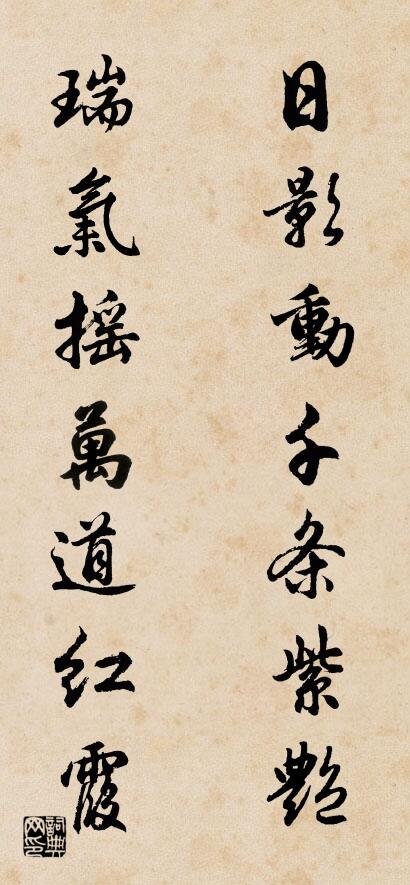 日影動千条紫艷
瑞氣摇萬道红霞
詞典网印